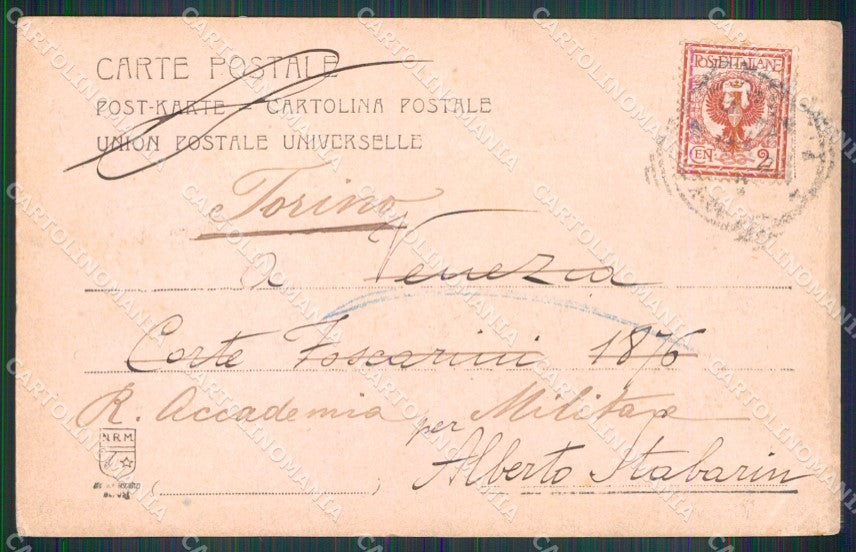 CARTE POSTALE
POST-KARTE – CARTOLINA POSTALE
UNION POSTALE UNIVERSELLE
POSTE ITALIANE
CEN 2
Torino
a Venezia
Corte Foscarini 1876
R. Accademia Militare
per
Alberto Stabarin
N.R.M.
CARTOLINOMANIA